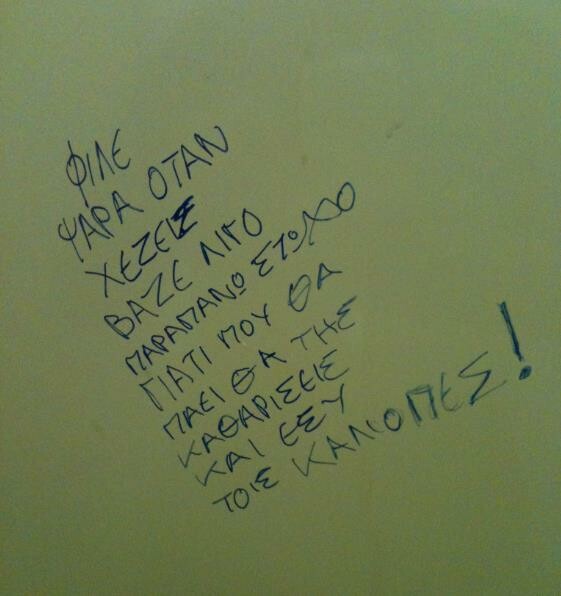 ΦΙΛΕ
ΨΑΡΑ ΟΤΑΝ
ΧΕΖΕΙΣ
ΒΑΖΕ ΛΙΓΟ
ΠΑΡΑΠΑΝΩ ΣΤΟΧΟ
ΓΙΑΤΙ ΠΟΥ ΘΑ
ΠΑΕΙ ΘΑ ΤΗΣ
ΚΑΘΑΡΙΣΕΙΣ
ΚΑΙ ΕΣΥ
ΤΟΙΣ ΚΑΛΙΟΠΕΣ!